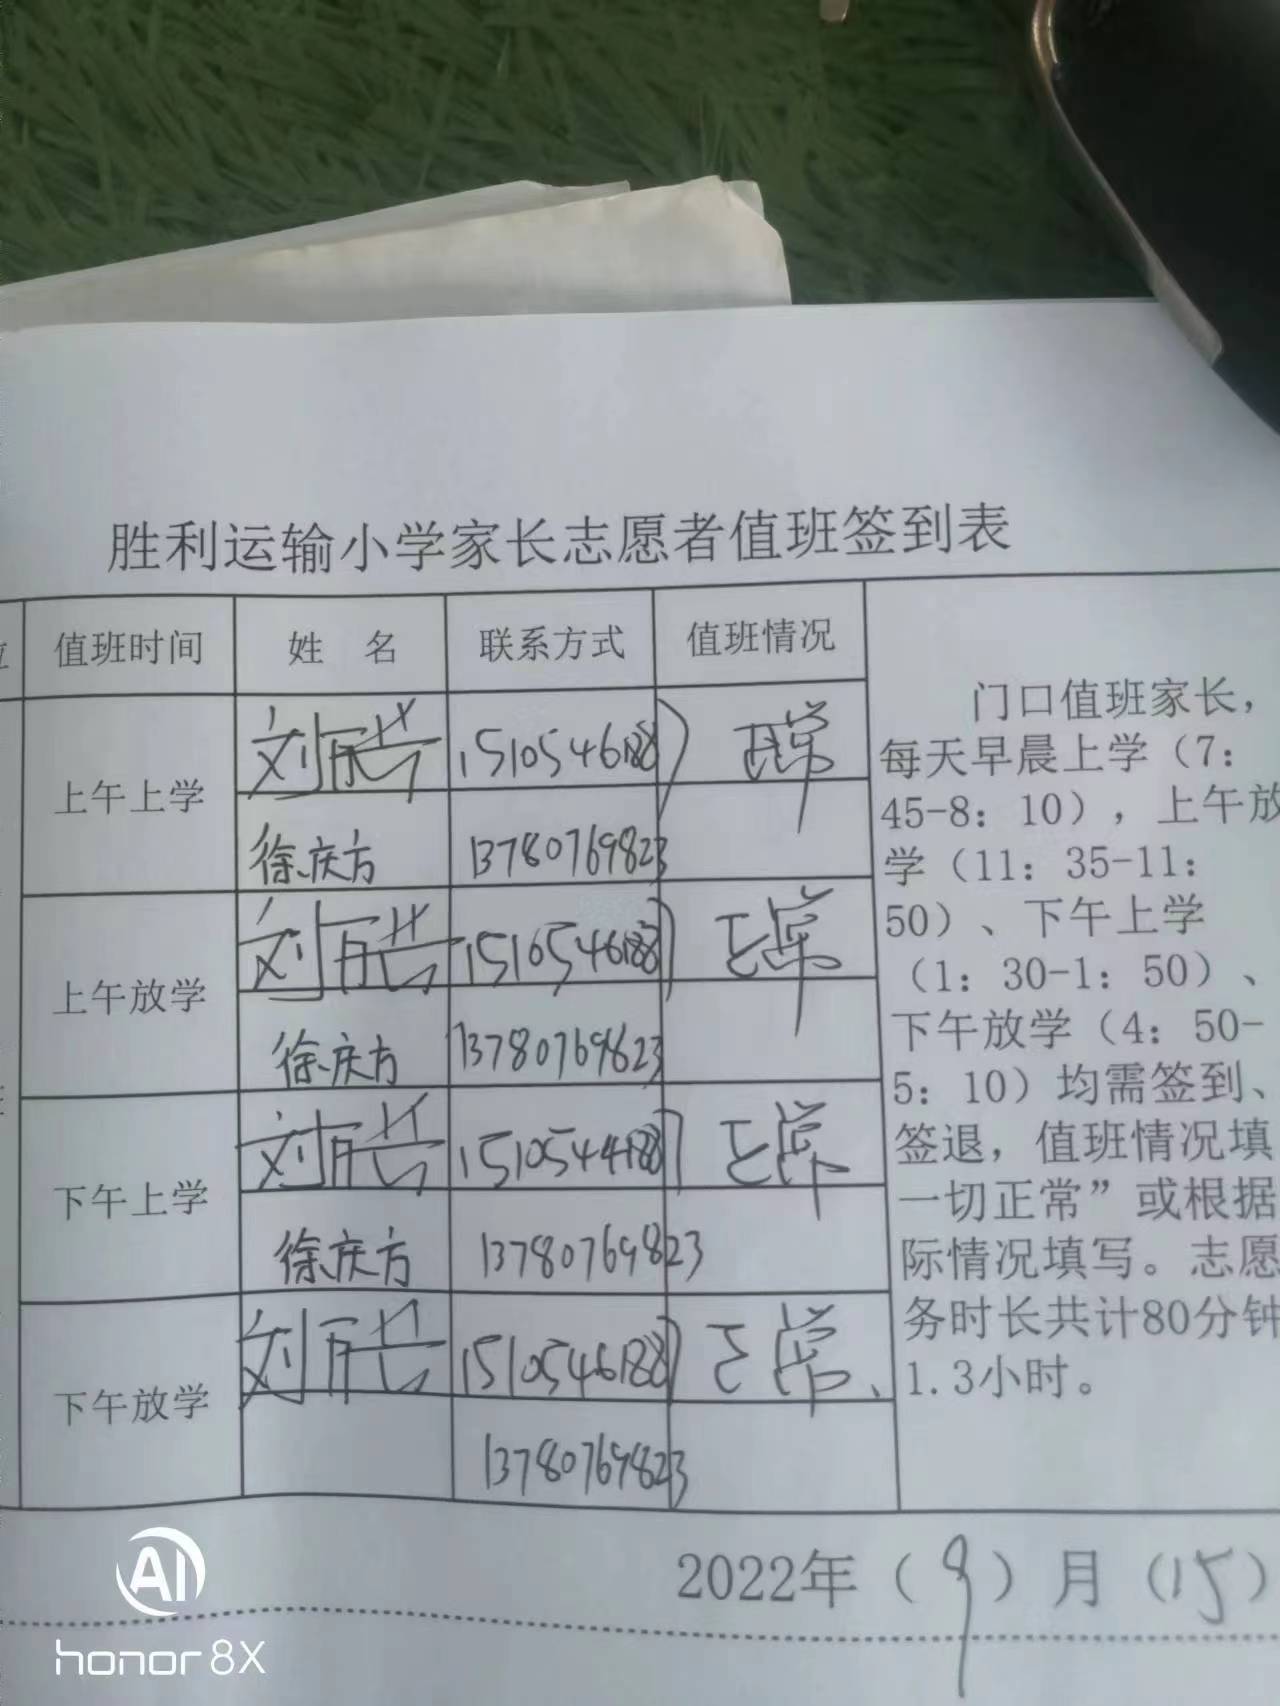 胜利运输小学家长志愿者值班签到表
值班时间 姓 名 联系方式 值班情况
上午上学
徐庆方 13780769823
上午放学
徐庆方 13780769823
下午上学
徐庆方 13780769823
下午放学
正常
13780769823
门口值班家长，
每天早晨上学（7：
45-8：10），上午放
学（11：35-11：
50）、下午上学
（1：30-1：50）、
下午放学（4：50-
5：10）均需签到、
签退，值班情况填
一切正常”或根据
际情况填写。志愿
务时长共计80分钟
1.3小时。
2022年（9）月（15）
AI
honor 8X